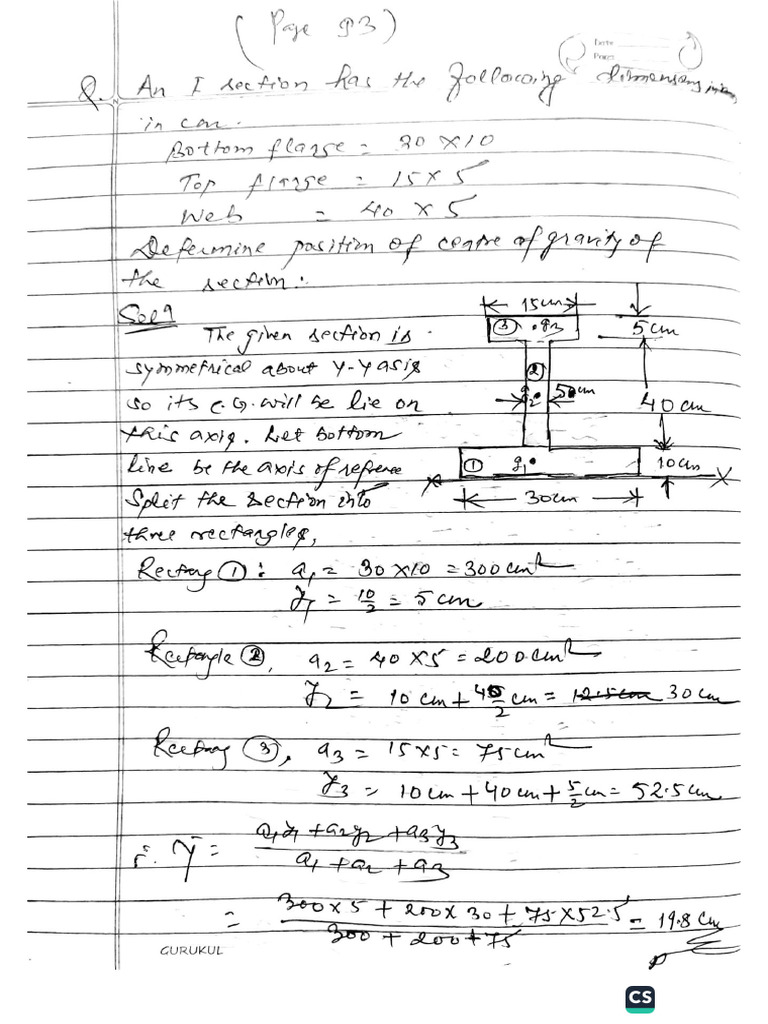 (Page 93)
Date
Page
Q. An I section has the following dimensions in mm
in cm.
Bottom flange = 30 x 10
Top flange = 15 x 5
Web = 40 x 5
Determine position of centre of gravity of
the section.
Sol^n
The given section is
symmetrical about Y-Y axis
so its C.G. will be lie on
this axis. Let bottom
line be the axis of refrence
Split the section into
three rectangles,
15cm
③ .g3
5cm
②
g2.
5cm
40cm
① g1.
10cm
X X
30cm
Rectang ① : a1 = 30 x 10 = 300 cm²
y1 = 10/2 = 5 cm
Rectangle ②, a2 = 40 x 5 = 200 cm²
y2 = 10 cm + 40/2 cm = 12.5cm 30 cm
Rectang ③, a3 = 15 x 5 = 75 cm²
y3 = 10 cm + 40 cm + 5/2 cm = 52.5 cm
∴ ȳ = a1y1 + a2y2 + a3y3 / a1 + a2 + a3
= 300 x 5 + 200 x 30 + 75 x 52.5 / 300 + 200 + 75 = 19.8 cm
GURUKUL
CS